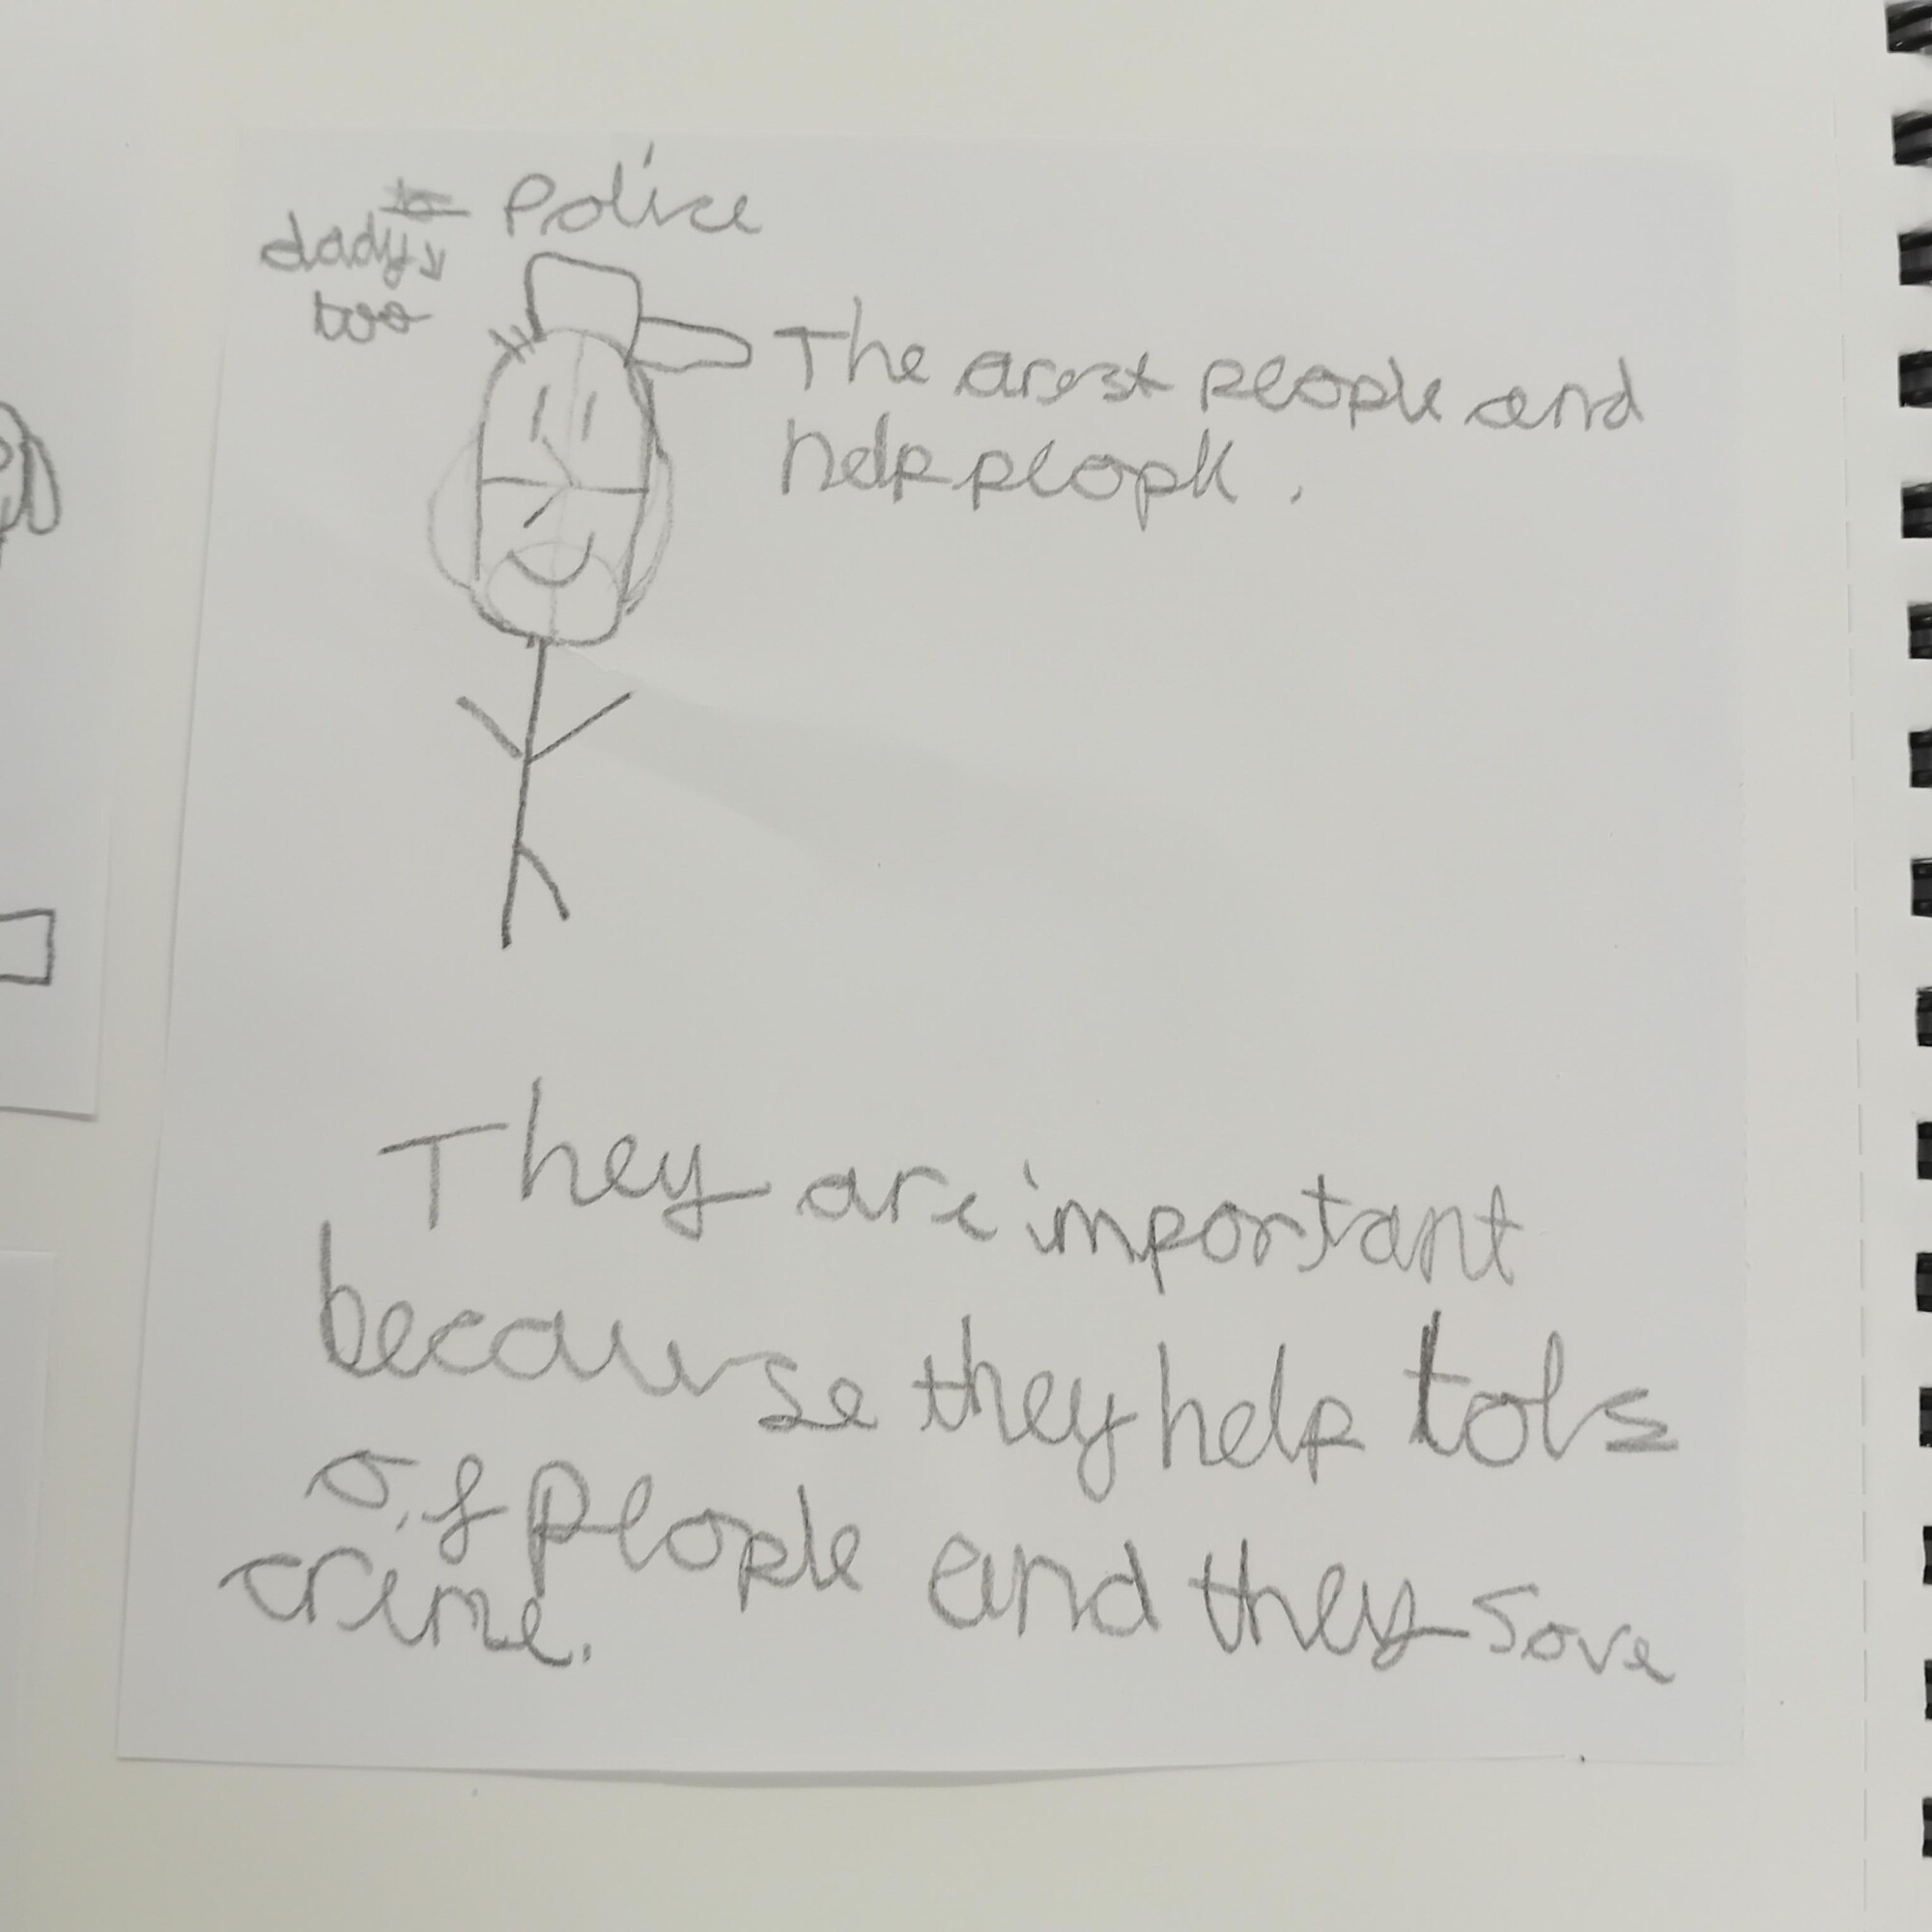 Police
dady
too
The arest people and
help people.
They are important
because they help tols
of people and they sove
crime.